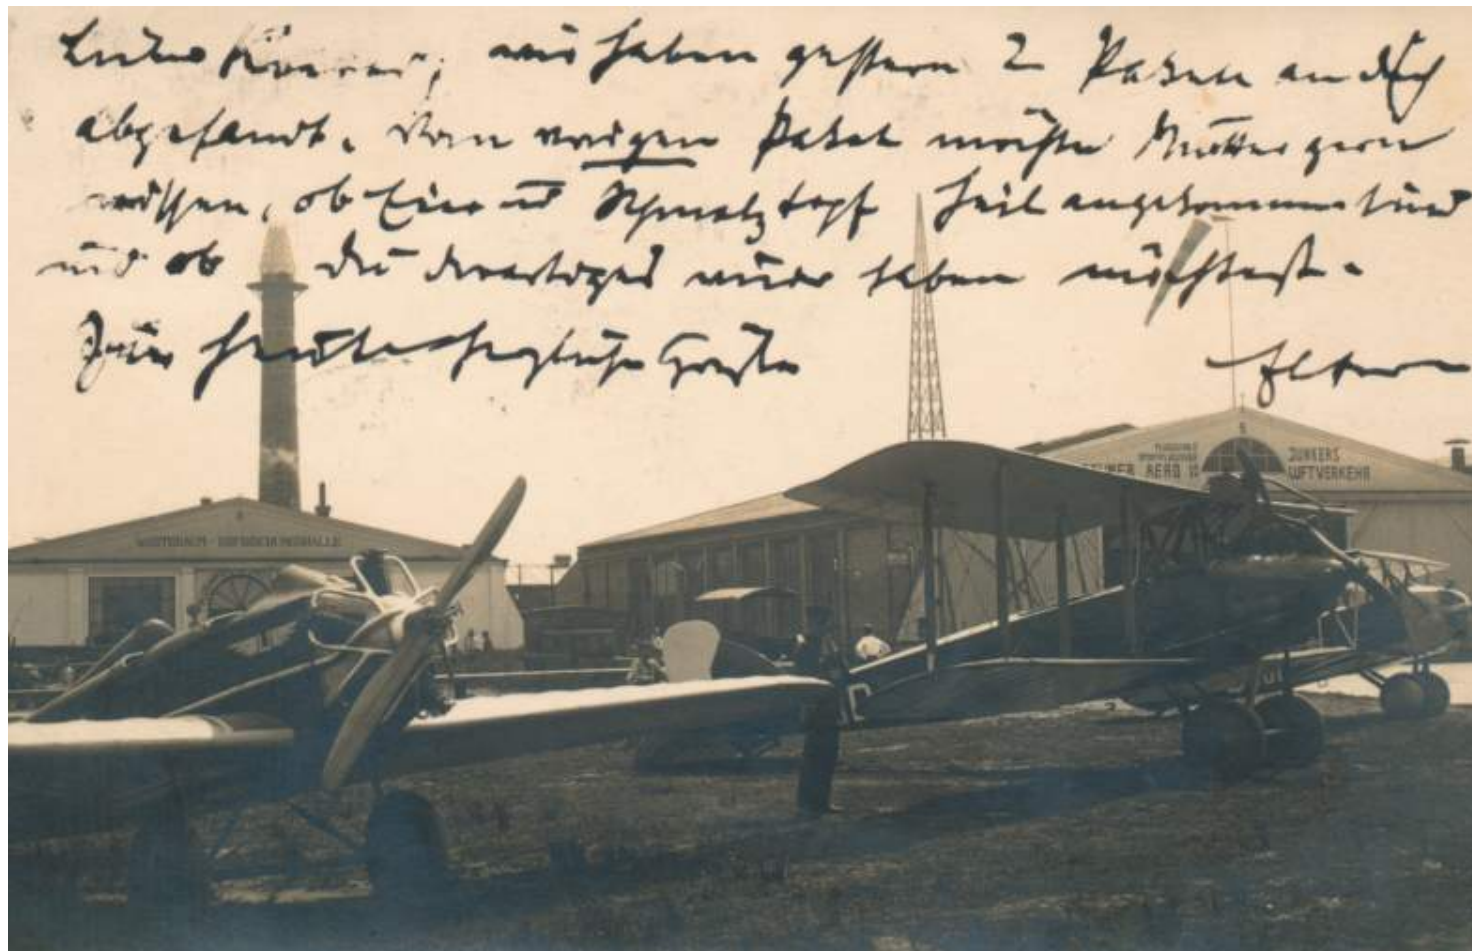 wir haben gestern 2 Pakete an dich
abgesandt. Vom vorigen Paket möchte Mutter gern
wissen, ob Eier u Schmalztopf heil angekommen sind
und ob du derartiges wieder haben möchtest.
Für heute herzliche Grüße
Eltern
AERO
JUNKERS
LUFTVERKEHR